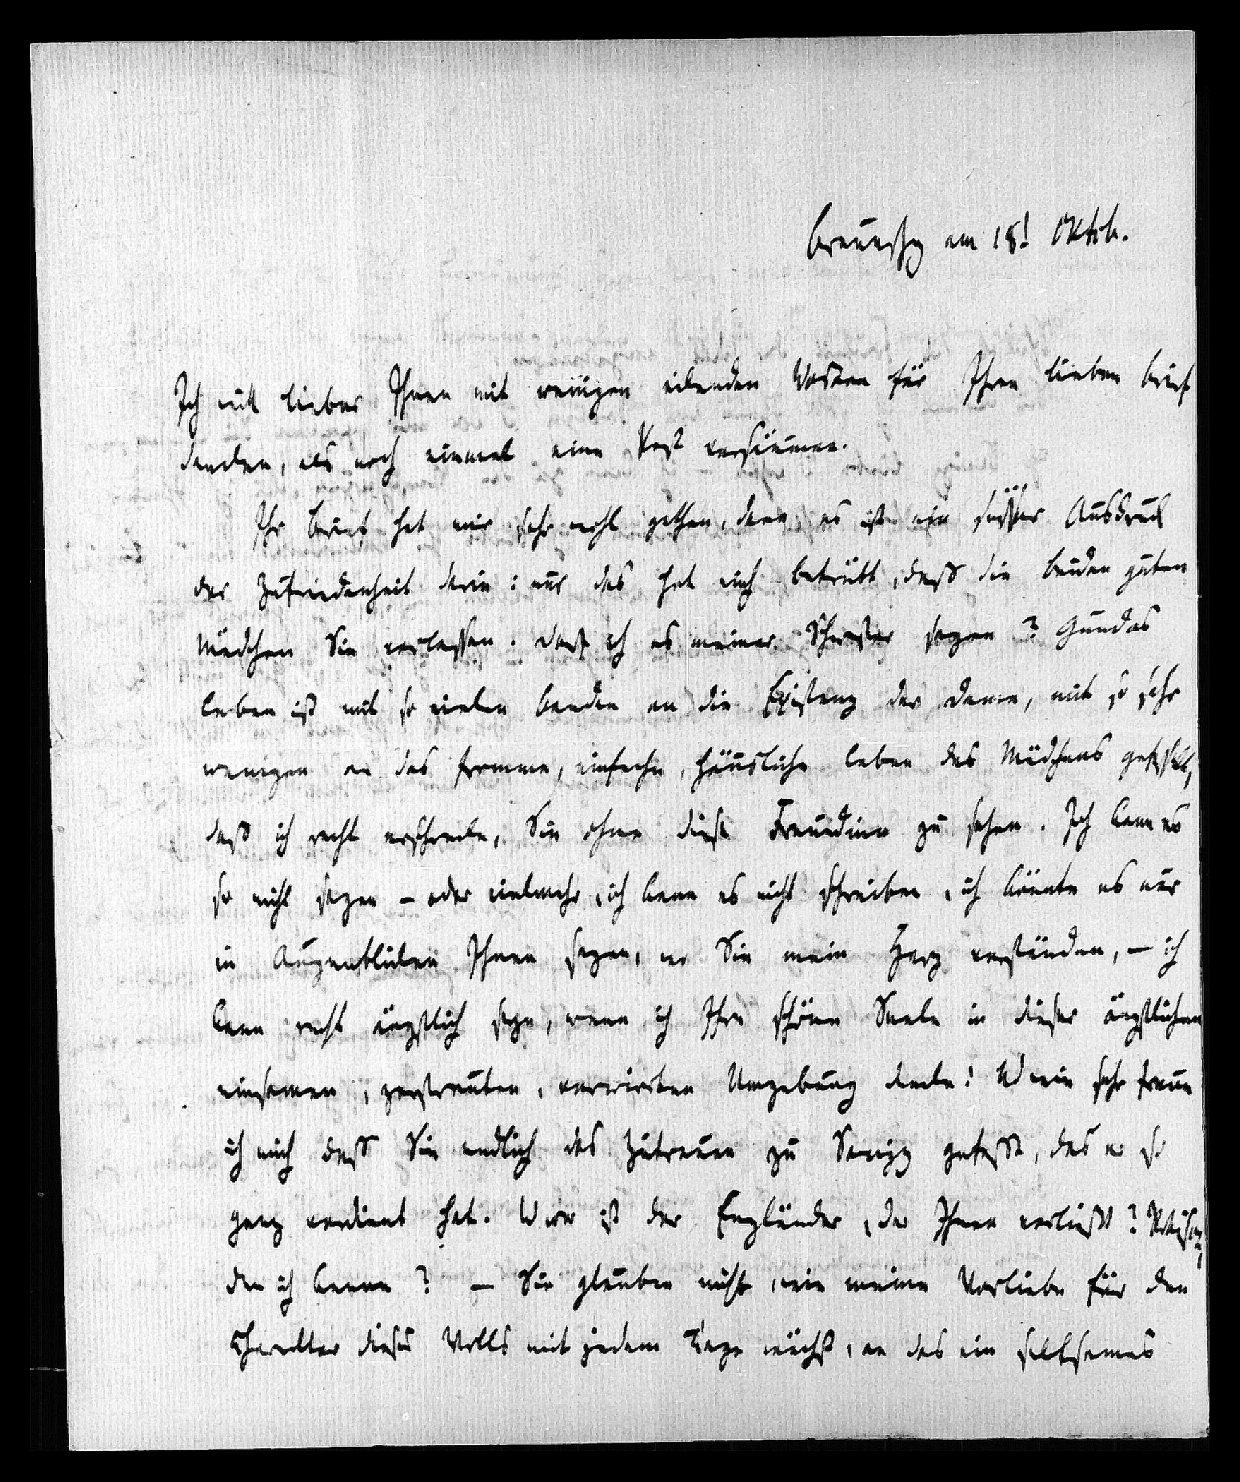 Braunschg am 18t Oktob.
Ich will lieber Ihnen mit wenigen eilenden Worten für Ihren lieben Brief
danken, als noch einmal eine Post versäumen.
Ihr Brief hat mir sehr wohl gethan, denn es ist ein süßer Ausdruck
der Zufriedenheit darin: nur das hat mich betrübt, daß die beiden guten
Mädchen Sie verlaßen. Darf ich es meiner Schwester sagen? Gundas
Leben ist mit so vielen Banden an die Existenz der Dame, mit so sehr
wenigen an das fromme, einfache, häusliche Leben des Mädchens geknüpft,
daß ich recht erschrecke, Sie ohne diese Freundinn zu sehen. Ich kann es
so nicht sagen – oder vielmehr, ich kann es nicht schreiben, ich könnte es nur
in Augenblicken Ihnen sagen, wo Sie mein Herz verständen, – ich
kann recht ängstlich seyn, wenn ich Ihre schöne Seele in dieser ängstlichen
einsamen, zerstreuten, verwirrten Umgebung denke! Wie sehr freue
ich mich daß Sie endlich das Zutrauen zu Savigny gefaßt, das er so
ganz verdient hat. Wer ist der Engländer, der Ihnen vorließt?
den ich kenne? – Sie glauben nicht, wie meine Vorliebe für den
Charakter dieses Volks mit jedem Tage wächst, an das ein seltsames